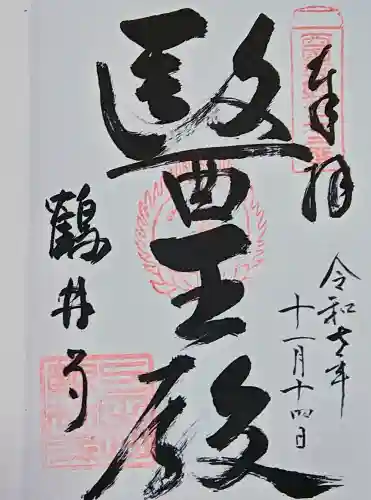 奉拝
令和七年
十一月十四日
醫王殿
鶴井寺